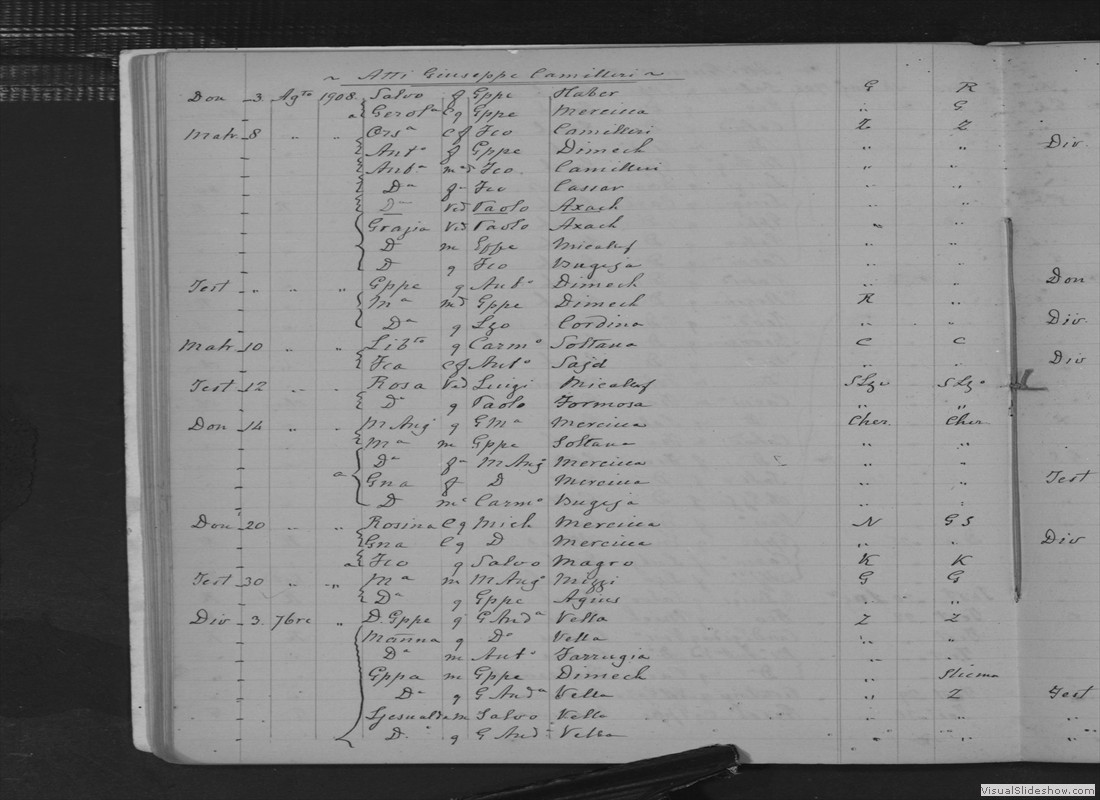 ~ Atti Giuseppe Camilleri ~
Don 3 Agto 1908 Salvo f Gppe Haber G R
a Gerola Cg Gppe Mercieca " G
Matr 8 " " Orsa Cf Fco Camilleri Z Z
Anto f Gppe Dimech " " Div
Anta md Fco Camilleri " "
Da f Fco Cassar " "
Da Ved Paolo Axach " "
Grazia Ved Paolo Axach " "
D m Gppe Micalef " "
D g Fco Bugeja " "
Test " " " Gppe g Anto Dimech " " Don
Ma md Gppe Dimech R "
Da g Lzo Cordina " " Div
Matr 10 " " Libto g Carmo Soltana C C
Fca Cf Anto Sajd " " Div
Test 12 " " Rosa Ved Luigi Micalef S Lzo S Lzo
Da g Paolo Formosa " "
Don 14 " " M Ang g G Ma Mercieca Cher. Cher
Ma m Gppe Soltana " "
Da f M Ang Mercieca " "
a Gna f D Mercieca " " Test
D m Carmo Bugeja " "
Don 20 " " Rosina Cg Mich Mercieca N G S
Gna Cg D Mercieca " " Div
a Fco g Salvo Magro K K
Test 30 " " Ma m M Ango Mizzi G G
Da g Gppe Agius " "
Div 3 7bre " D. Gppe g G Anda Vella Z Z
Marīnna g Do Vella " "
Da m Anto Farrugia " "
Gppa m Gppe Dimech " Sliema
Da g G Anda Vella " Z Test
Ljesualda m Salvo Vella " " "
D. g G And Vella " " "
VisualSlideshow.com